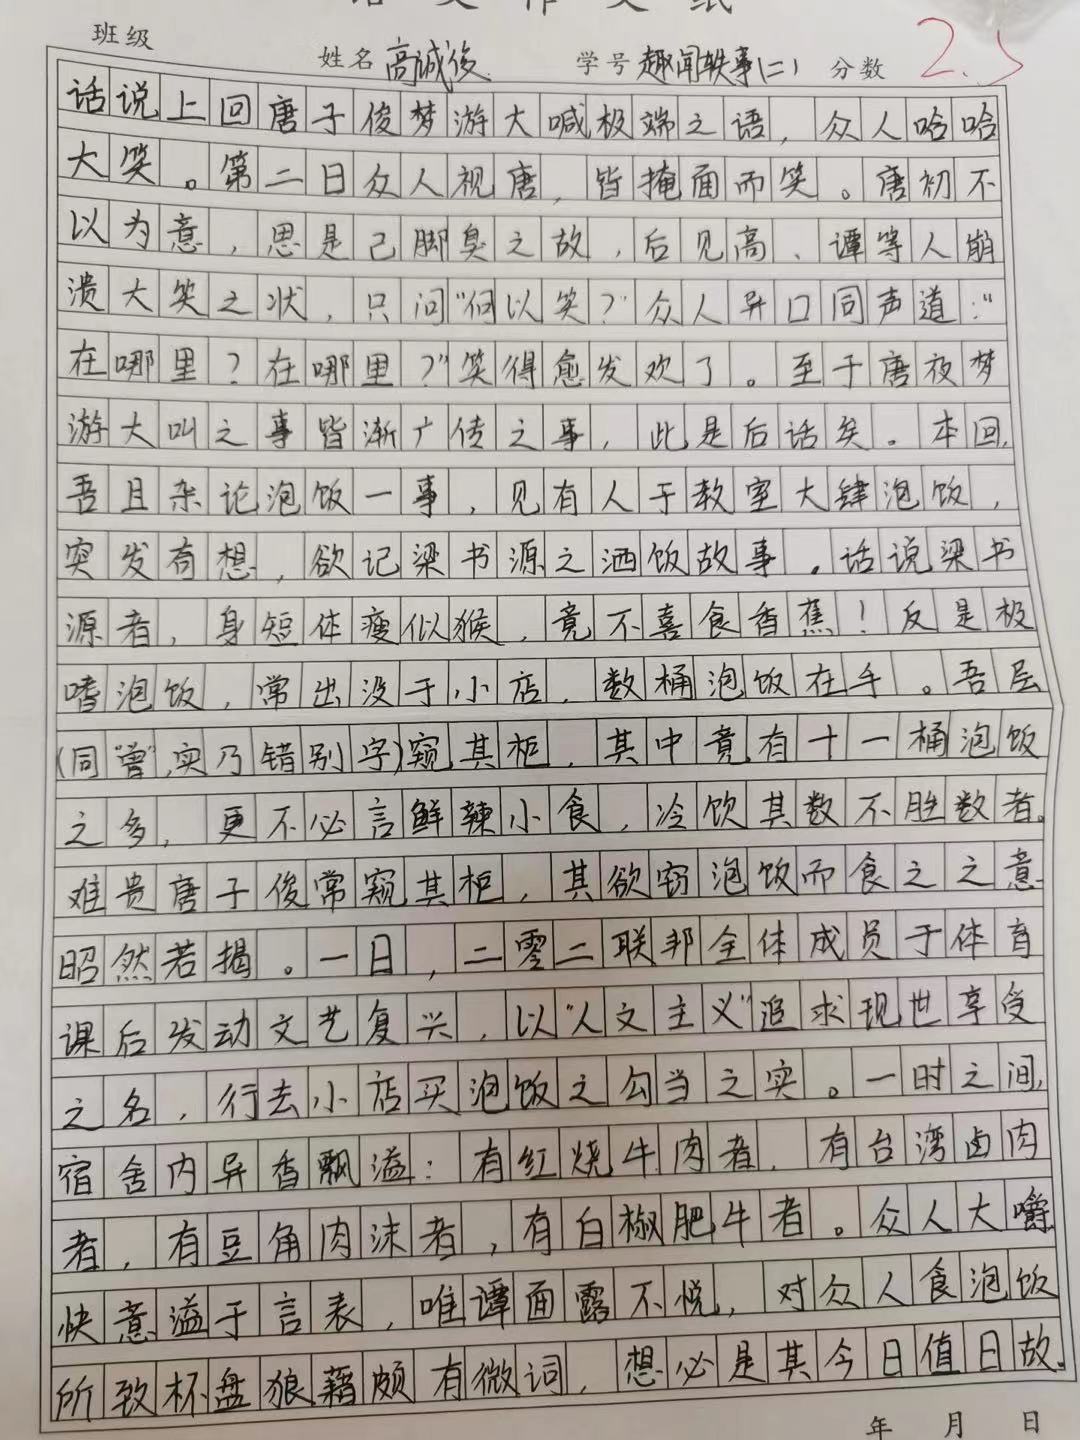 语文作文纸
班级 姓名 高诚俊 学号 趣闻轶事(二) 分数 2.5
话说上回唐子俊梦游大喊极端之语，众人哈哈
大笑。第二日众人视唐，皆掩面而笑。唐初不
以为意，思是己脚臭之故，后见高、谭等人崩
溃大笑之状，只问"何以笑？"众人异口同声道："
在哪里？在哪里？"笑得愈发欢了。至于唐夜梦
游大叫之事皆渐广传之事，此是后话矣。本回，
吾且杂论泡饭一事，见有人于教室大肆泡饭，
突发奇想，欲记梁书源之洒饭故事。话说梁书
源者，身短体瘦似猴，竟不喜食香蕉！反是极
嗜泡饭，常出没于小店，数桶泡饭在手。吾层
(同"曾"，实乃错别字)窥其柜，其中竟有十一桶泡饭
之多，更不必言鲜辣小食，冷饮其数不胜数者。
难贵唐子俊常窥其柜，其欲窃泡饭而食之之意
昭然若揭。一日，二零二联邦全体成员于体育
课后发动文艺复兴，以"人文主义"追求现世享受
之名，行去小店买泡饭之勾当之实。一时之间，
宿舍内异香飘溢：有红烧牛肉者，有台湾卤肉
者，有豆角肉沫者，有白椒肥牛者。众人大嚼
快意溢于言表，唯谭面露不悦，对众人食泡饭
所致杯盘狼藉颇有微词，想必是其今日值日故。
年 月 日